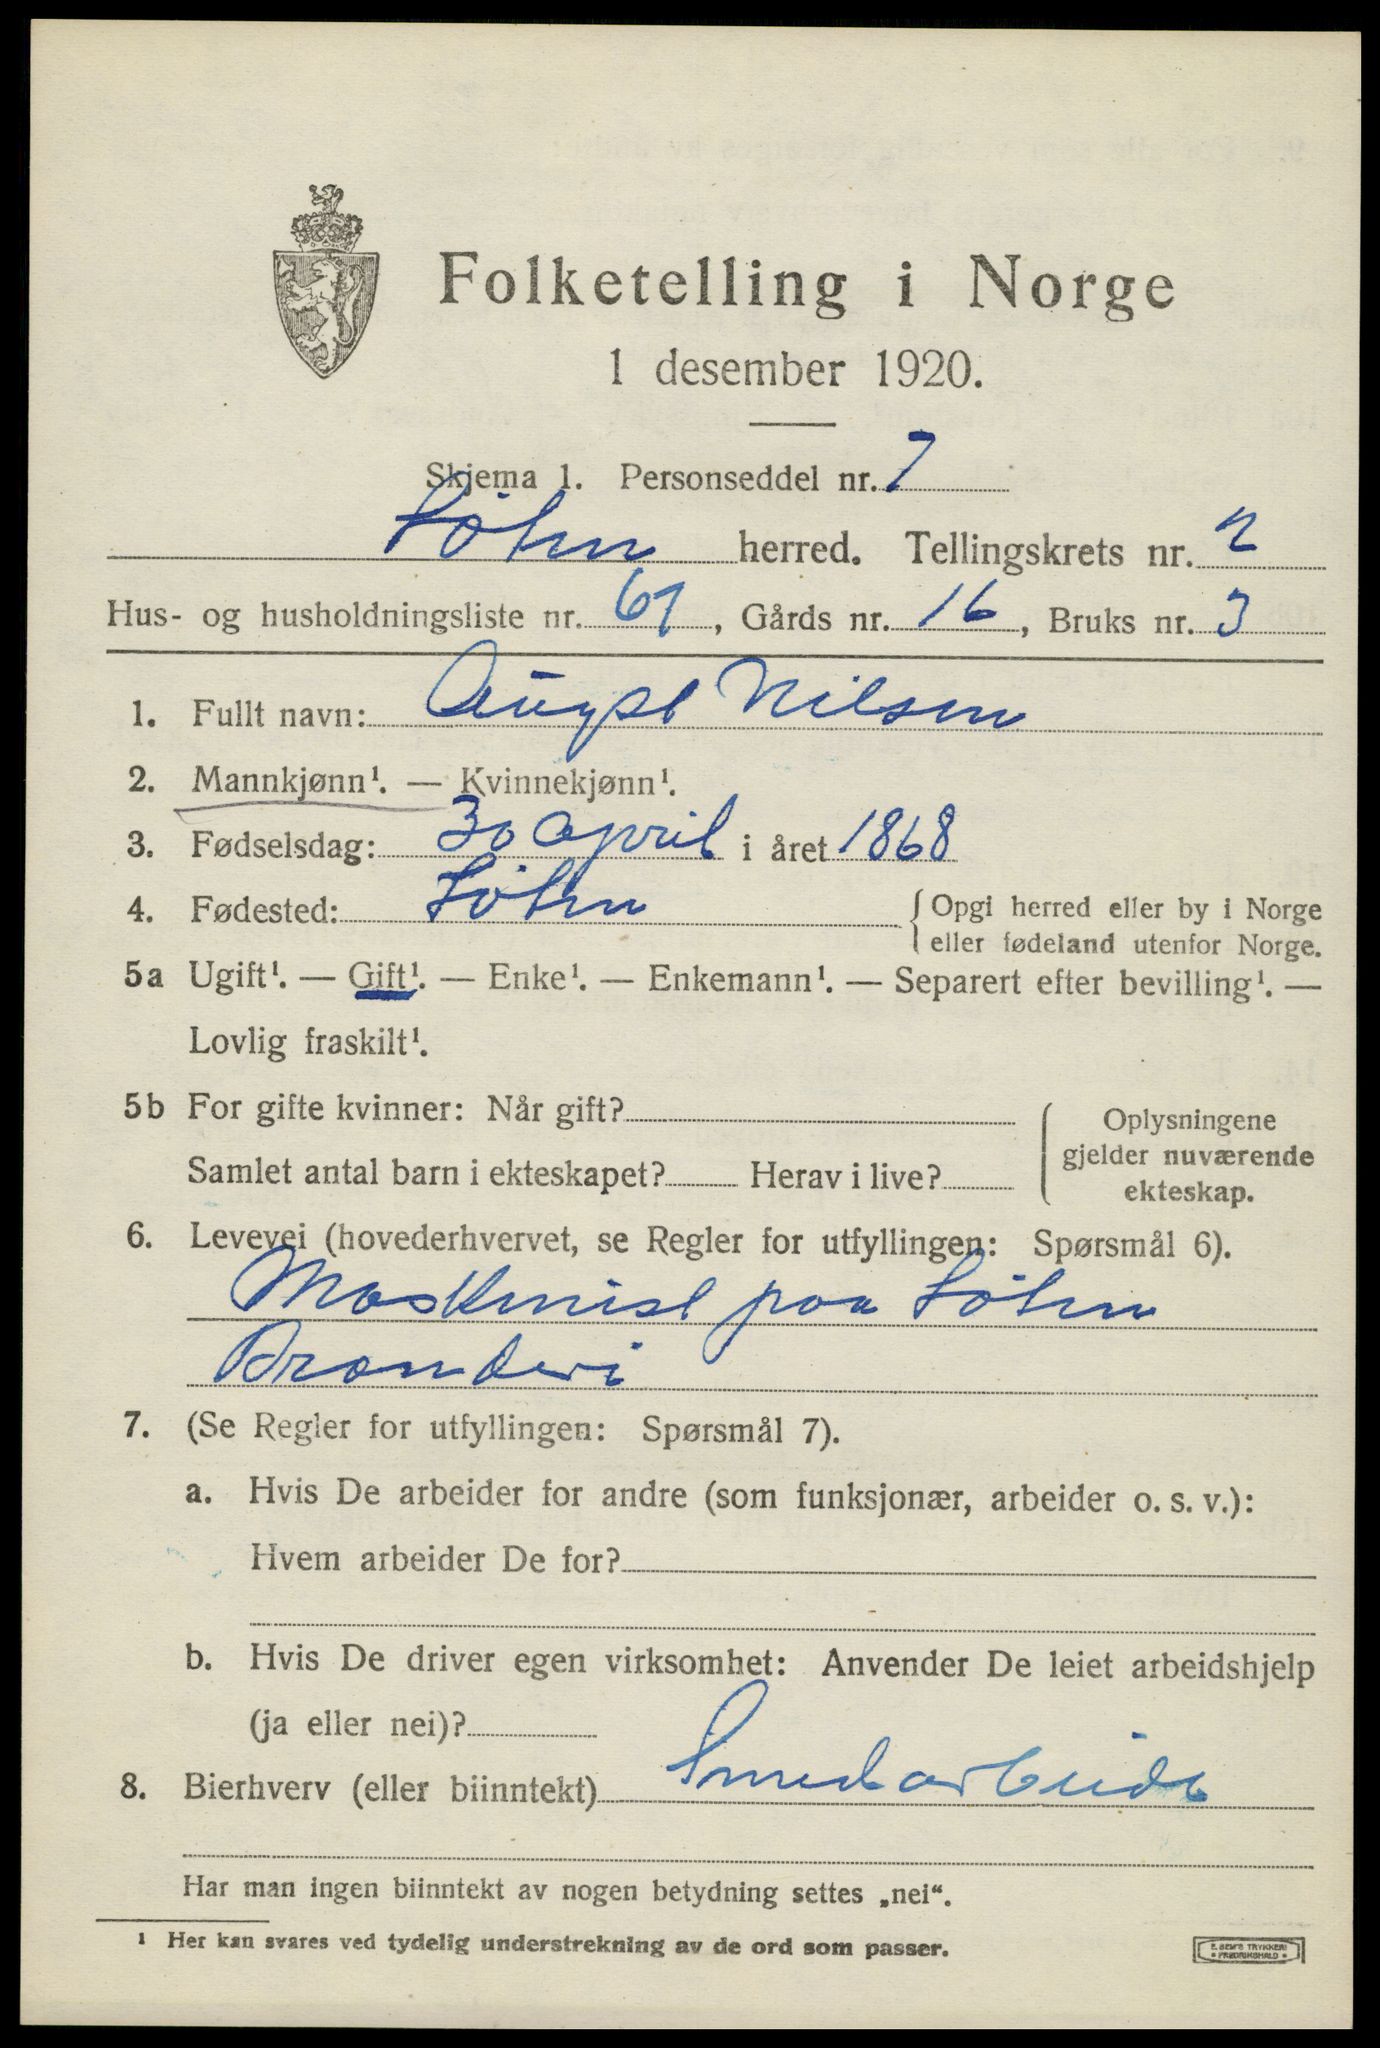 Folketelling i Norge
1 desember 1920.
Skjema 1. Personseddel nr. 7
Løten herred. Tellingskrets nr. 2
Hus- og husholdningsliste nr. 61, Gårds nr. 16, Bruks nr. 3
1. Fullt navn: August Nilsen
2. Mannkjønn¹. — Kvinnekjønn¹.
3. Fødselsdag: 30 april i året 1868
4. Fødested: Løten { Opgi herred eller by i Norge
eller fødeland utenfor Norge.
5a Ugift¹. — Gift¹. — Enke¹. — Enkemann¹. — Separert efter bevilling¹. —
Lovlig fraskilt¹.
5b For gifte kvinner: Når gift?
Samlet antal barn i ekteskapet? Herav i live?
Oplysningene
gjelder nuværende
ekteskap.
6. Levevei (hovederhvervet, se Regler for utfyllingen: Spørsmål 6).
Maskinist paa Løten
Brænderi
7. (Se Regler for utfyllingen: Spørsmål 7).
a. Hvis De arbeider for andre (som funksjonær, arbeider o. s. v.):
Hvem arbeider De for?
b. Hvis De driver egen virksomhet: Anvender De leiet arbeidshjelp
(ja eller nei)?
8. Bierhverv (eller biinntekt) Smedarbeide
Har man ingen biinntekt av nogen betydning settes „nei“.
¹ Her kan svares ved tydelig understrekning av de ord som passer.
E. SEM'S TRYKKERI
FREDRIKSHALD